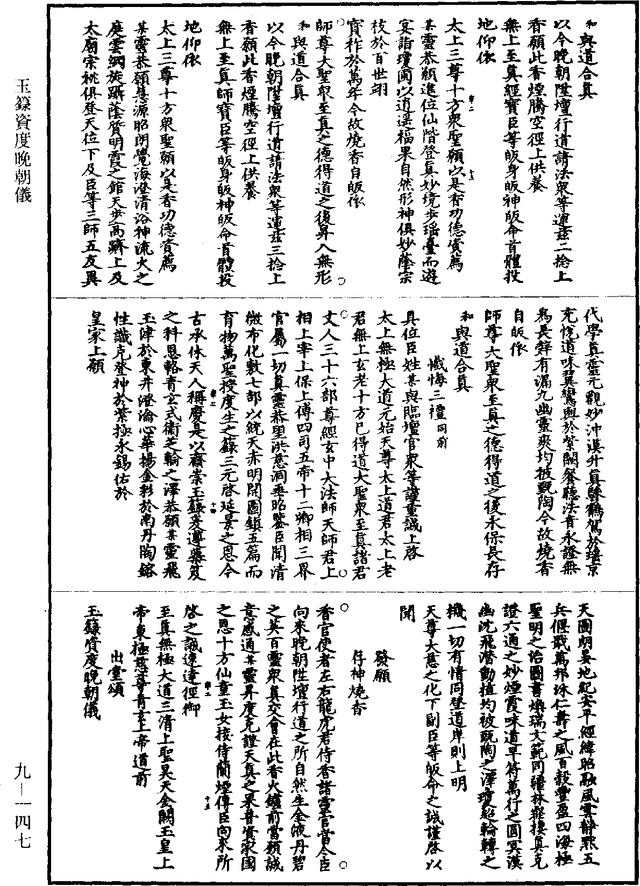 玉籙資度晚朝儀
九一一四七
和與道合真
以今晚朝陞壇行道請法衆等運茲二捻上
香願此香煙騰空徑上供養
無上至真經寶臣等皈身皈神皈命首體投
地仰依
太上三尊十方衆聖願以是香功德資薦
某靈恭願進位仙階登真妙境步瑤臺而遊
宴詣瓊闕以逍遙福果自然形神俱妙蔭宗
枝於百世翊
寶祚於萬年今故燒香自皈依
師尊大聖衆至真之德得道之後昇入無形
和與道合真
以今晚朝陞壇行道請法衆等運茲三捻上
香願此香煙騰空徑上供養
無上至真師寶臣等皈身皈神皈命首體投
地仰依
太上三尊十方衆聖願以是香功德資薦
某靈恭願慈源昭朗覺海澄清浴神流火之
庭雲綱旋躡蔭質明霞之館天步高躋上及
太廟宗祧俱登天位下及臣等三師五友異
代學真靈元觀妙沖漠升真驂鶴駕於瑤京
充悅道味翼鸞輿於紫闕餐聽法音永證無
為長辭有漏九幽靈爽均被甄陶今故燒香
自皈依
師尊大聖衆至真之德得道之後永保長存
和與道合真
懺悔三禮同前
具位臣姓某與臨壇官衆等謹重誠上啓
太上無極大道元始天尊太上道君太上老
君無上玄老十方已得道大聖衆至真諸君
丈人三十六部尊經玄中大法師天師君上
相上宰上保上傅四司五帝十二卿相三界
官屬一切真靈恭望洪慈洞垂昭鑒臣聞清
微布化數七部以統天赤明開圖鎮五篇而
育物萬聖授度生之籙三元啓延景之恩今
古承休天人稱慶是以齋崇玉籙爰遵藥笈
之科恩輅青玄式衛芝輪之澤恭願某靈飛
玉津於東井澄瀹心華揚金彩於南丹陶鎔
性識克聲神於紫極永錫佑於
皇家上願
天圖朗晏地紀安平經緯昭融風雲靜默五
兵偃戢萬邦咏仁壽之風百穀豐盈四海極
聖明之治圖書煥瑞文範同疆林巒棲真克
證六通之妙煙霞味道早符萬行之圓冥漠
幽沈飛潛動植均被甄陶之澤瓊愆輪轉之
機一切有情同登道岸則上明
天尊大慈之化下副臣等皈命之誠謹啓以
聞
發願
存神燒香
香官使者左右龍虎君侍香諸靈官當令臣
向來晚朝陞壇行道之所自然生金液丹碧
之英百靈衆真交會在此香火鑪前當願誠
意感通某靈昇度克證天真之果普資家國
之恩十方仙童玉女接侍蘭煙傳臣向來所
啓之誠速達徑御
至真無極大道三清上聖昊天金闕玉皇上
帝東極慈尊青玄上帝道前
出堂頌
玉籙資度晚朝儀